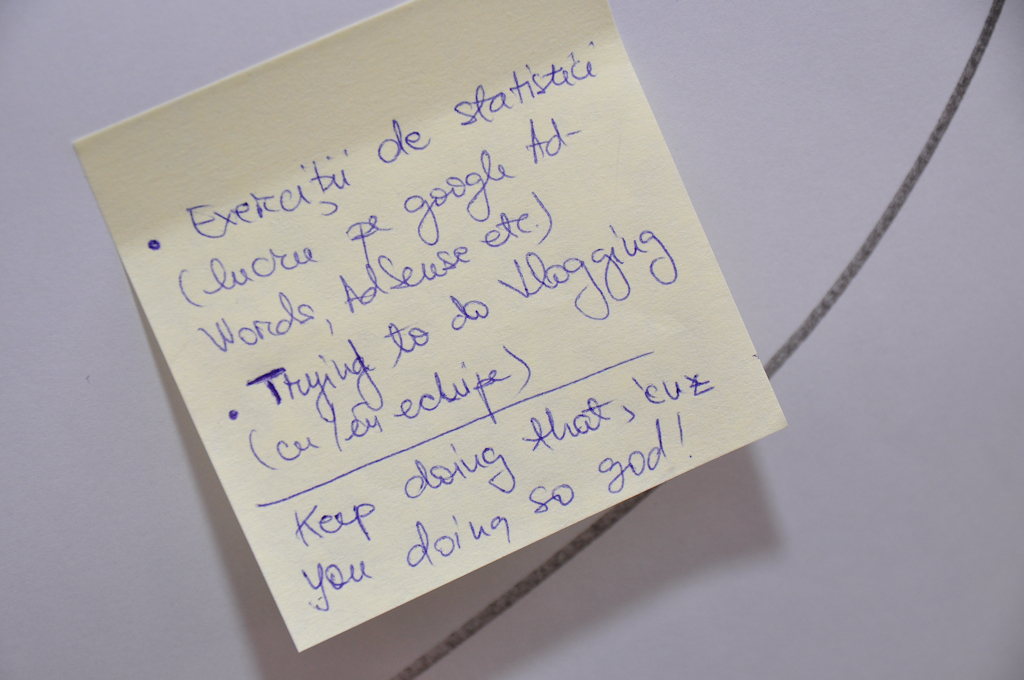 • Exerciții de statistici
(lucru pe google Ad-
Words, AdSense etc.)
• Trying to do Vlogging
(cu/în echipe)
Keep doing that, 'cuz
you doing so god!